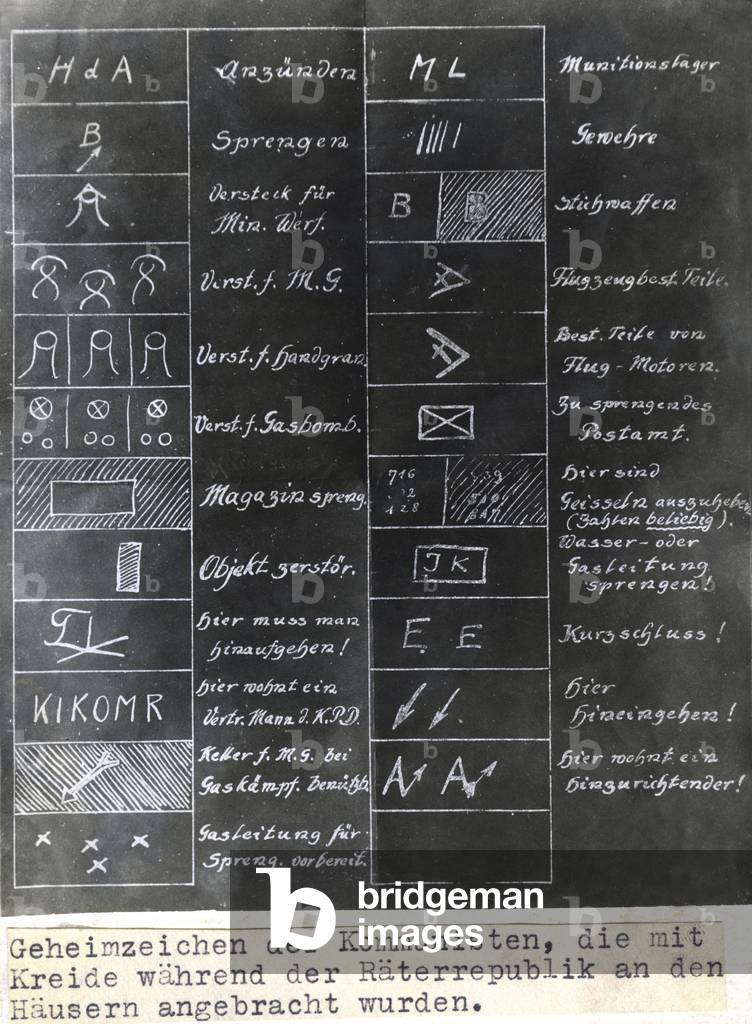 H d A Anzünden
B Sprengen
Versteck für
Min. Werf.
Verst. f. M. G.
Verst. f. Handgran.
Verst. f. Gasbomb.
Magazin spreng.
Objekt zerstör.
Hier muss man
hinaufgehen!
KIKOMR
Hier wohnt ein
Vertr. Mann d. K.P.D.
Keller f. M. G. bei
Gaskämpf. benützb.
Gasleitung für
Spreng. vorbereit.
M L Munitionslager
Gewehre
B B Stichwaffen
Flugzeugbest. Teile.
Best. Teile von
Flug-Motoren.
Zu sprengendes
Postamt.
716
128
Hier sind
Geisseln auszuheben
(Zahlen beliebig).
J K
Wasser- oder
Gasleitung
sprengen!
E E Kurzschluss!
Hier
hineingehen!
A A
Hier wohnt ein
hinzurichtender!
b bridgeman
images
Geheimzeichen der Kommunisten, die mit
Kreide während der Räterrepublik an den
Häusern angebracht wurden.